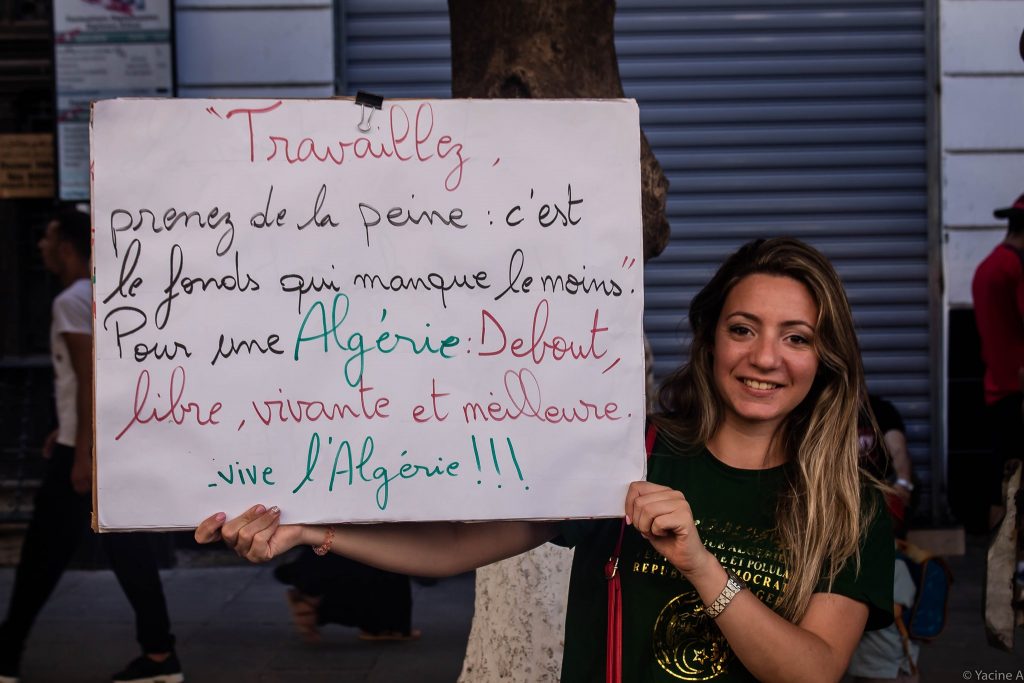 "Travaillez,
prenez de la peine : c'est
le fonds qui manque le moins".
Pour une Algérie : Debout,
libre, vivante et meilleure.
- vive l'Algérie !!!
© Yacine A